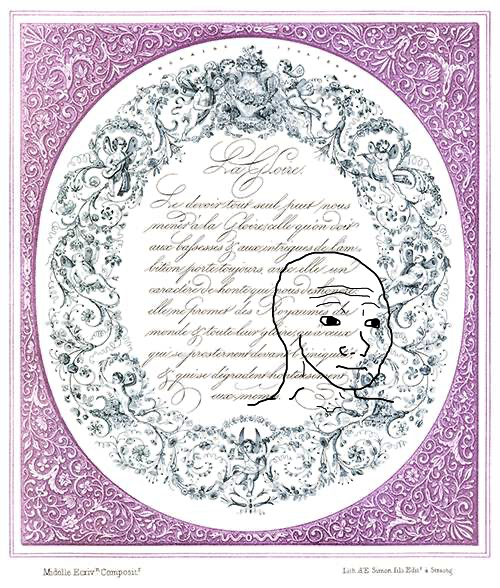 La Gloire.
Le devoir tout seul peut nous
mener à la Gloire; celle qu'on doit
aux bassesses & aux intrigues de l'am-
bition porte toujours, avec elle un
caractère de honte qui nous deshonore
elle ne promet des Royaumes du
monde & toute leur gloire qu'à ceux
qui se prosternent devant l'iniquité
& qui se dégradent honteusement
eux mem
Midolle Ecrivⁿ Compositʳ
Lith. d'E. Simon fils Editʳ à Strasbg